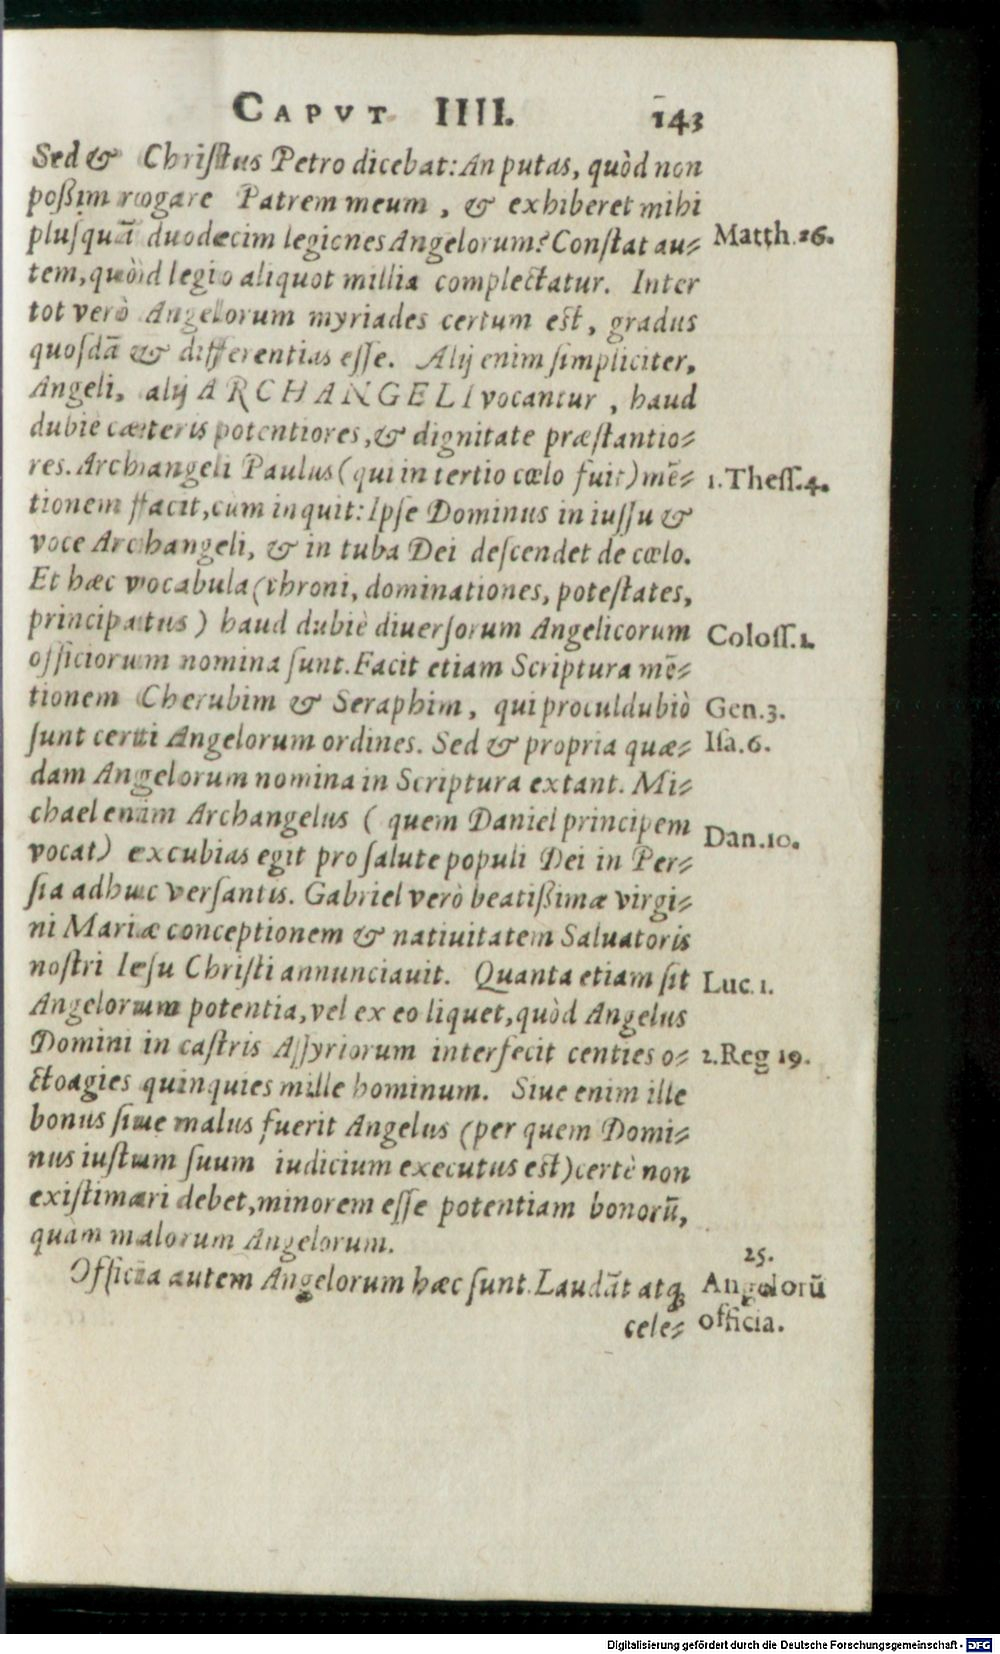 CAPVT IIII. 143
Sed & Chriſtus Petro dicebat: An putas, quòd non
poßim rogare Patrem meum, & exhiberet mihi
pluſquā duodecim legiones Angelorum? Conſtat au⸗
Matth. 26.
tem, quòd legio aliquot millia complectatur. Inter
tot verò Angelorum myriades certum est, gradus
quoſdā & differentias eſſe. Alij enim ſimpliciter,
Angeli, alij ARCHANGELI vocantur, haud
dubiè cæteris potentiores, & dignitate præſtantio⸗
res. Archangeli Paulus (qui in tertio cœlo fuit) mē⸗
1. Theſſ. 4.
tionem facit, cum inquit: Ipſe Dominus in iuſſu &
voce Archangeli, & in tuba Dei deſcendet de cœlo.
Et hæc vocabula (throni, dominationes, poteſtates,
principatus) haud dubiè diuerſorum Angelicorum
Coloſſ. 1.
officiorum nomina ſunt. Facit etiam Scriptura mē⸗
tionem Cherubim & Seraphim, qui proculdubiò
Gen. 3.
ſunt certi Angelorum ordines. Sed & propria quæ⸗
Iſa. 6.
dam Angelorum nomina in Scriptura extant. Mi⸗
chael enim Archangelus (quem Daniel principem
Dan. 10.
vocat) excubias egit pro ſalute populi Dei in Per⸗
ſia adhuc verſantis. Gabriel verò beatißimæ virgi⸗
ni Mariæ conceptionem & natiuitatem Saluatoris
noſtri Ieſu Chriſti annunciauit. Quanta etiam ſit
Luc. 1.
Angelorum potentia, vel ex eo liquet, quòd Angelus
Domini in caſtris Aſſyriorum interfecit centies o⸗
2. Reg 19.
ctoagies quinquies mille hominum. Siue enim ille
bonus ſiue malus fuerit Angelus (per quem Domi⸗
nus iuſtum ſuum iudicium executus est) certè non
exiſtimari debet, minorem eſſe potentiam bonorū,
quàm malorum Angelorum.
25.
Officia autem Angelorum hæc ſunt. Laudāt atq;
Angelorū
cele⸗
officia.
Digitalisierung gefördert durch die Deutsche Forschungsgemeinschaft - DFG